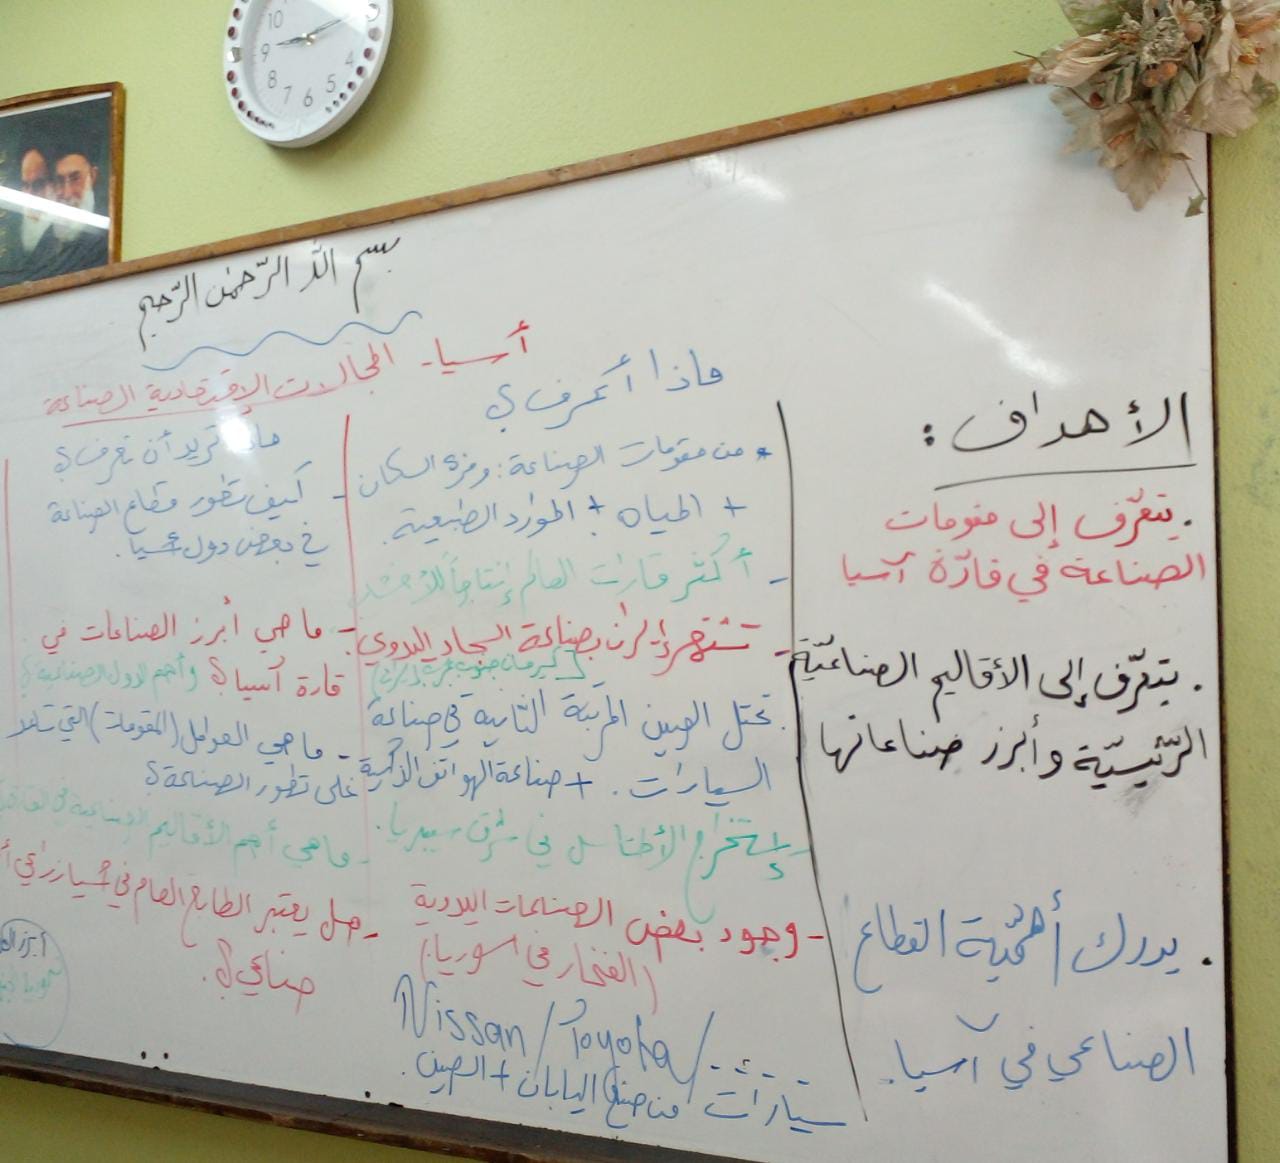 بسم اللّه الرّحمٰن الرّحيم
أسيا - المجالات الإقتصادية الصناعة
الأهداف :
. يتعرّف إلى مقومات
الصناعة في قارّة آسيا
. يتعرّف إلى الأقاليم الصناعيّة
الرّئيسيّة وأبرز صناعاتها
. يدرك أهمّية القطاع
الصناعي في آسيا.
ماذا أعرف؟
• من مقومات الصناعة: وفرة السكان
+ المياه + الموارد الطبيعية.
- أكثر قارات العالم إنتاجاً للأرز
- تشتهر إيران بصناعة السجاد اليدوي.
(كيرمان جنوب غرب إيران)
. تحتل الصين المرتبة الثانية في صناعة
السيارات. + صناعة الهواتف الذكية
- إستخراج الألماس في شرق سيبريا.
- وجود بعض الصناعات اليدوية
(الفخار في سوريا)
Nissan / Toyota / ...
سيّارات من صنع اليابان + الصين.
ماذا تريد أن تعرف؟
- كيف تطور قطاع الصناعة
في بعض دول آسيا.
- ما هي أبرز الصناعات في
قارة آسيا؟ وأهم الدول الصناعية؟
- ما هي العوامل (المقومات) التي
على تطور الصناعة؟
- ما هي أهم الأقاليم الصناعية في
- هل يعتبر الطابع العام في آسيا زراعي أ
صناعي؟.
أبرز
10
9
8
7
6
5
4